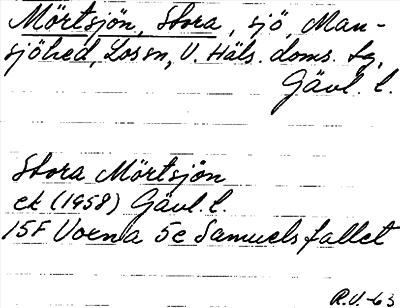 Mörtsjön, Stora, sjö, Man-
sjöhed, Los sn, V. Häls. doms. tg,
Gävl. l.
Stora Mörtsjön
ek (1958) Gävl. l.
15F Voxna 5e Samuelsfallet
R.V.-63